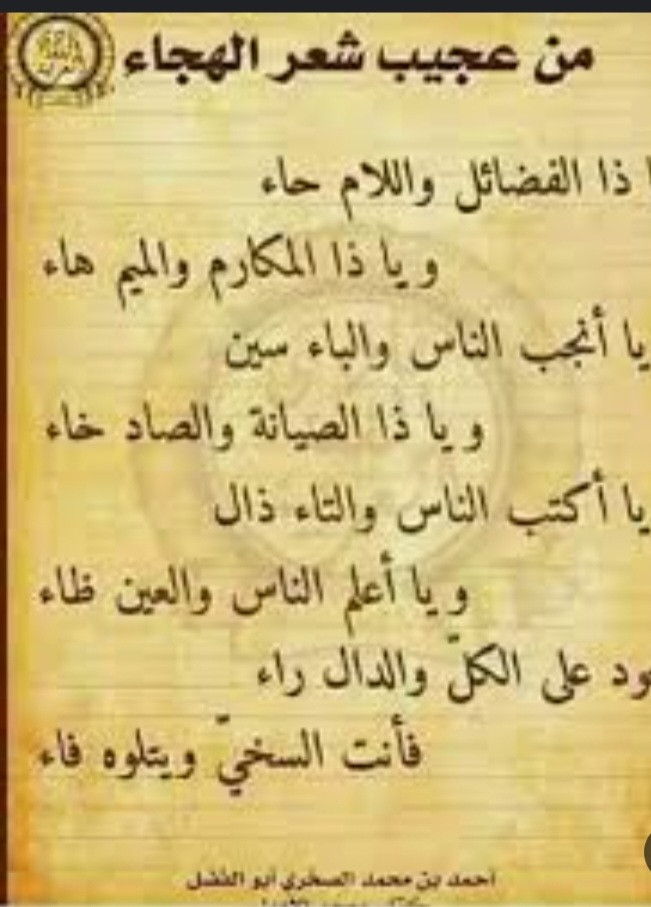 من عجيب شعر الهجاء
ذا الفضائل واللام حاء
و يا ذا المكارم والميم هاء
يا أنجب الناس والباء سين
و يا ذا الصيانة والصاد خاء
يا أكتب الناس والتاء ذال
و يا أعلم الناس والعين ظاء
على الكلّ والدال راء
فأنت السخيّ ويتلوه فاء
احمد بن محمد الصخري أبو الفضل